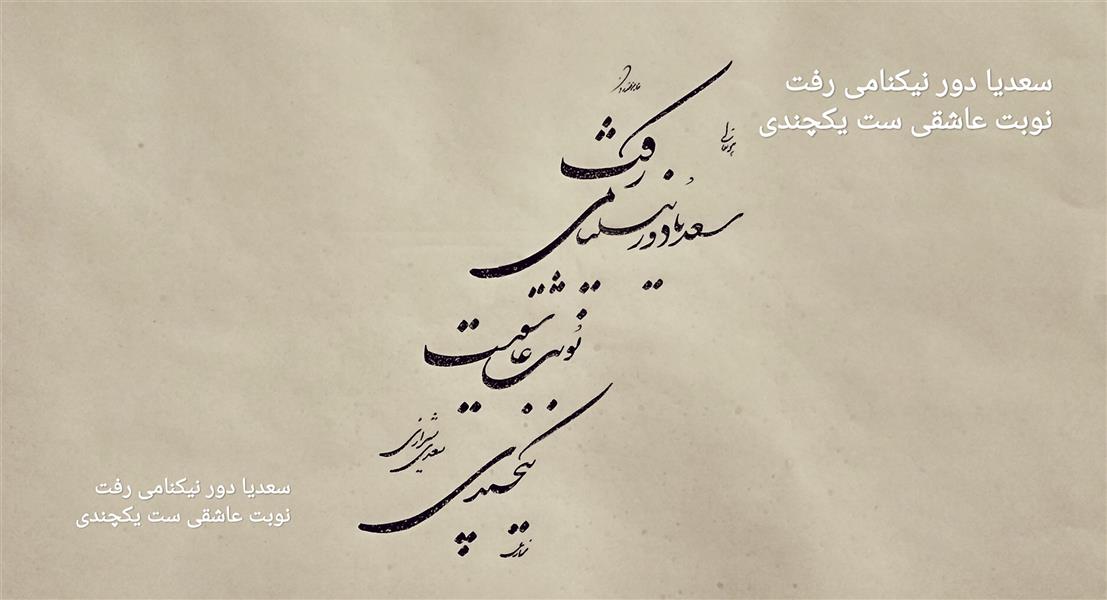 سعدیا دور نیکنامی رفت
نوبت عاشقی ست یکچندی
رفت
سعدیا دور نیکنامی
نوبت عاشقیست
یکچندی
سعدی شیرازی
سعدیا دور نیکنامی رفت
نوبت عاشقی ست یکچندی